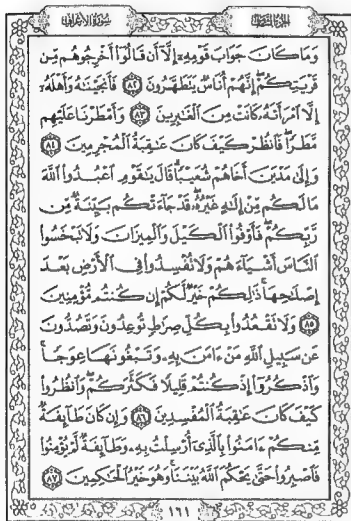 سُورَةُ الأَعْرَافِ الجُزْءُ الثَّامِنُ
وَمَا كَانَ جَوَابَ قَوْمِهِۦٓ إِلَّآ أَن قَالُوٓا۟ أَخْرِجُوهُم مِّن
قَرْيَتِكُمْ إِنَّهُمْ أُنَاسٌ يَتَطَهَّرُونَ ٨٢ فَأَنجَيْنَٰهُ وَأَهْلَهُۥٓ
إِلَّا ٱمْرَأَتَهُۥ كَانَتْ مِنَ ٱلْغَٰبِرِينَ ٨٣ وَأَمْطَرْنَا عَلَيْهِم
مَّطَرًا فَٱنظُرْ كَيْفَ كَانَ عَٰقِبَةُ ٱلْمُجْرِمِينَ ٨٤
وَإِلَىٰ مَدْيَنَ أَخَاهُمْ شُعَيْبًا قَالَ يَٰقَوْمِ ٱعْبُدُوا۟ ٱللَّهَ
مَا لَكُم مِّنْ إِلَٰهٍ غَيْرُهُۥ قَدْ جَآءَتْكُم بَيِّنَةٌ مِّن
رَّبِّكُمْ فَأَوْفُوا۟ ٱلْكَيْلَ وَٱلْمِيزَانَ وَلَا تَبْخَسُوا۟
ٱلنَّاسَ أَشْيَآءَهُمْ وَلَا تُفْسِدُوا۟ فِى ٱلْأَرْضِ بَعْدَ
إِصْلَٰحِهَا ذَٰلِكُمْ خَيْرٌ لَّكُمْ إِن كُنتُم مُّؤْمِنِينَ
٨٥ وَلَا تَقْعُدُوا۟ بِكُلِّ صِرَٰطٍ تُوعِدُونَ وَتَصُدُّونَ
عَن سَبِيلِ ٱللَّهِ مَنْ ءَامَنَ بِهِۦ وَتَبْغُونَهَا عِوَجًا
وَٱذْكُرُوٓا۟ إِذْ كُنتُمْ قَلِيلًا فَكَثَّرَكُمْ وَٱنظُرُوا۟
كَيْفَ كَانَ عَٰقِبَةُ ٱلْمُفْسِدِينَ ٨٦ وَإِن كَانَ طَآئِفَةٌ
مِّنكُمْ ءَامَنُوا۟ بِٱلَّذِىٓ أُرْسِلْتُ بِهِۦ وَطَآئِفَةٌ لَّمْ يُؤْمِنُوا۟
فَٱصْبِرُوا۟ حَتَّىٰ يَحْكُمَ ٱللَّهُ بَيْنَنَا وَهُوَ خَيْرُ ٱلْحَٰكِمِينَ ٨٧
١٦١